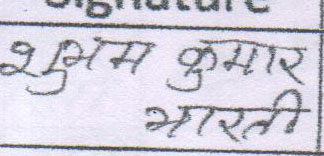 Signature
शुभम कुमार
भारती